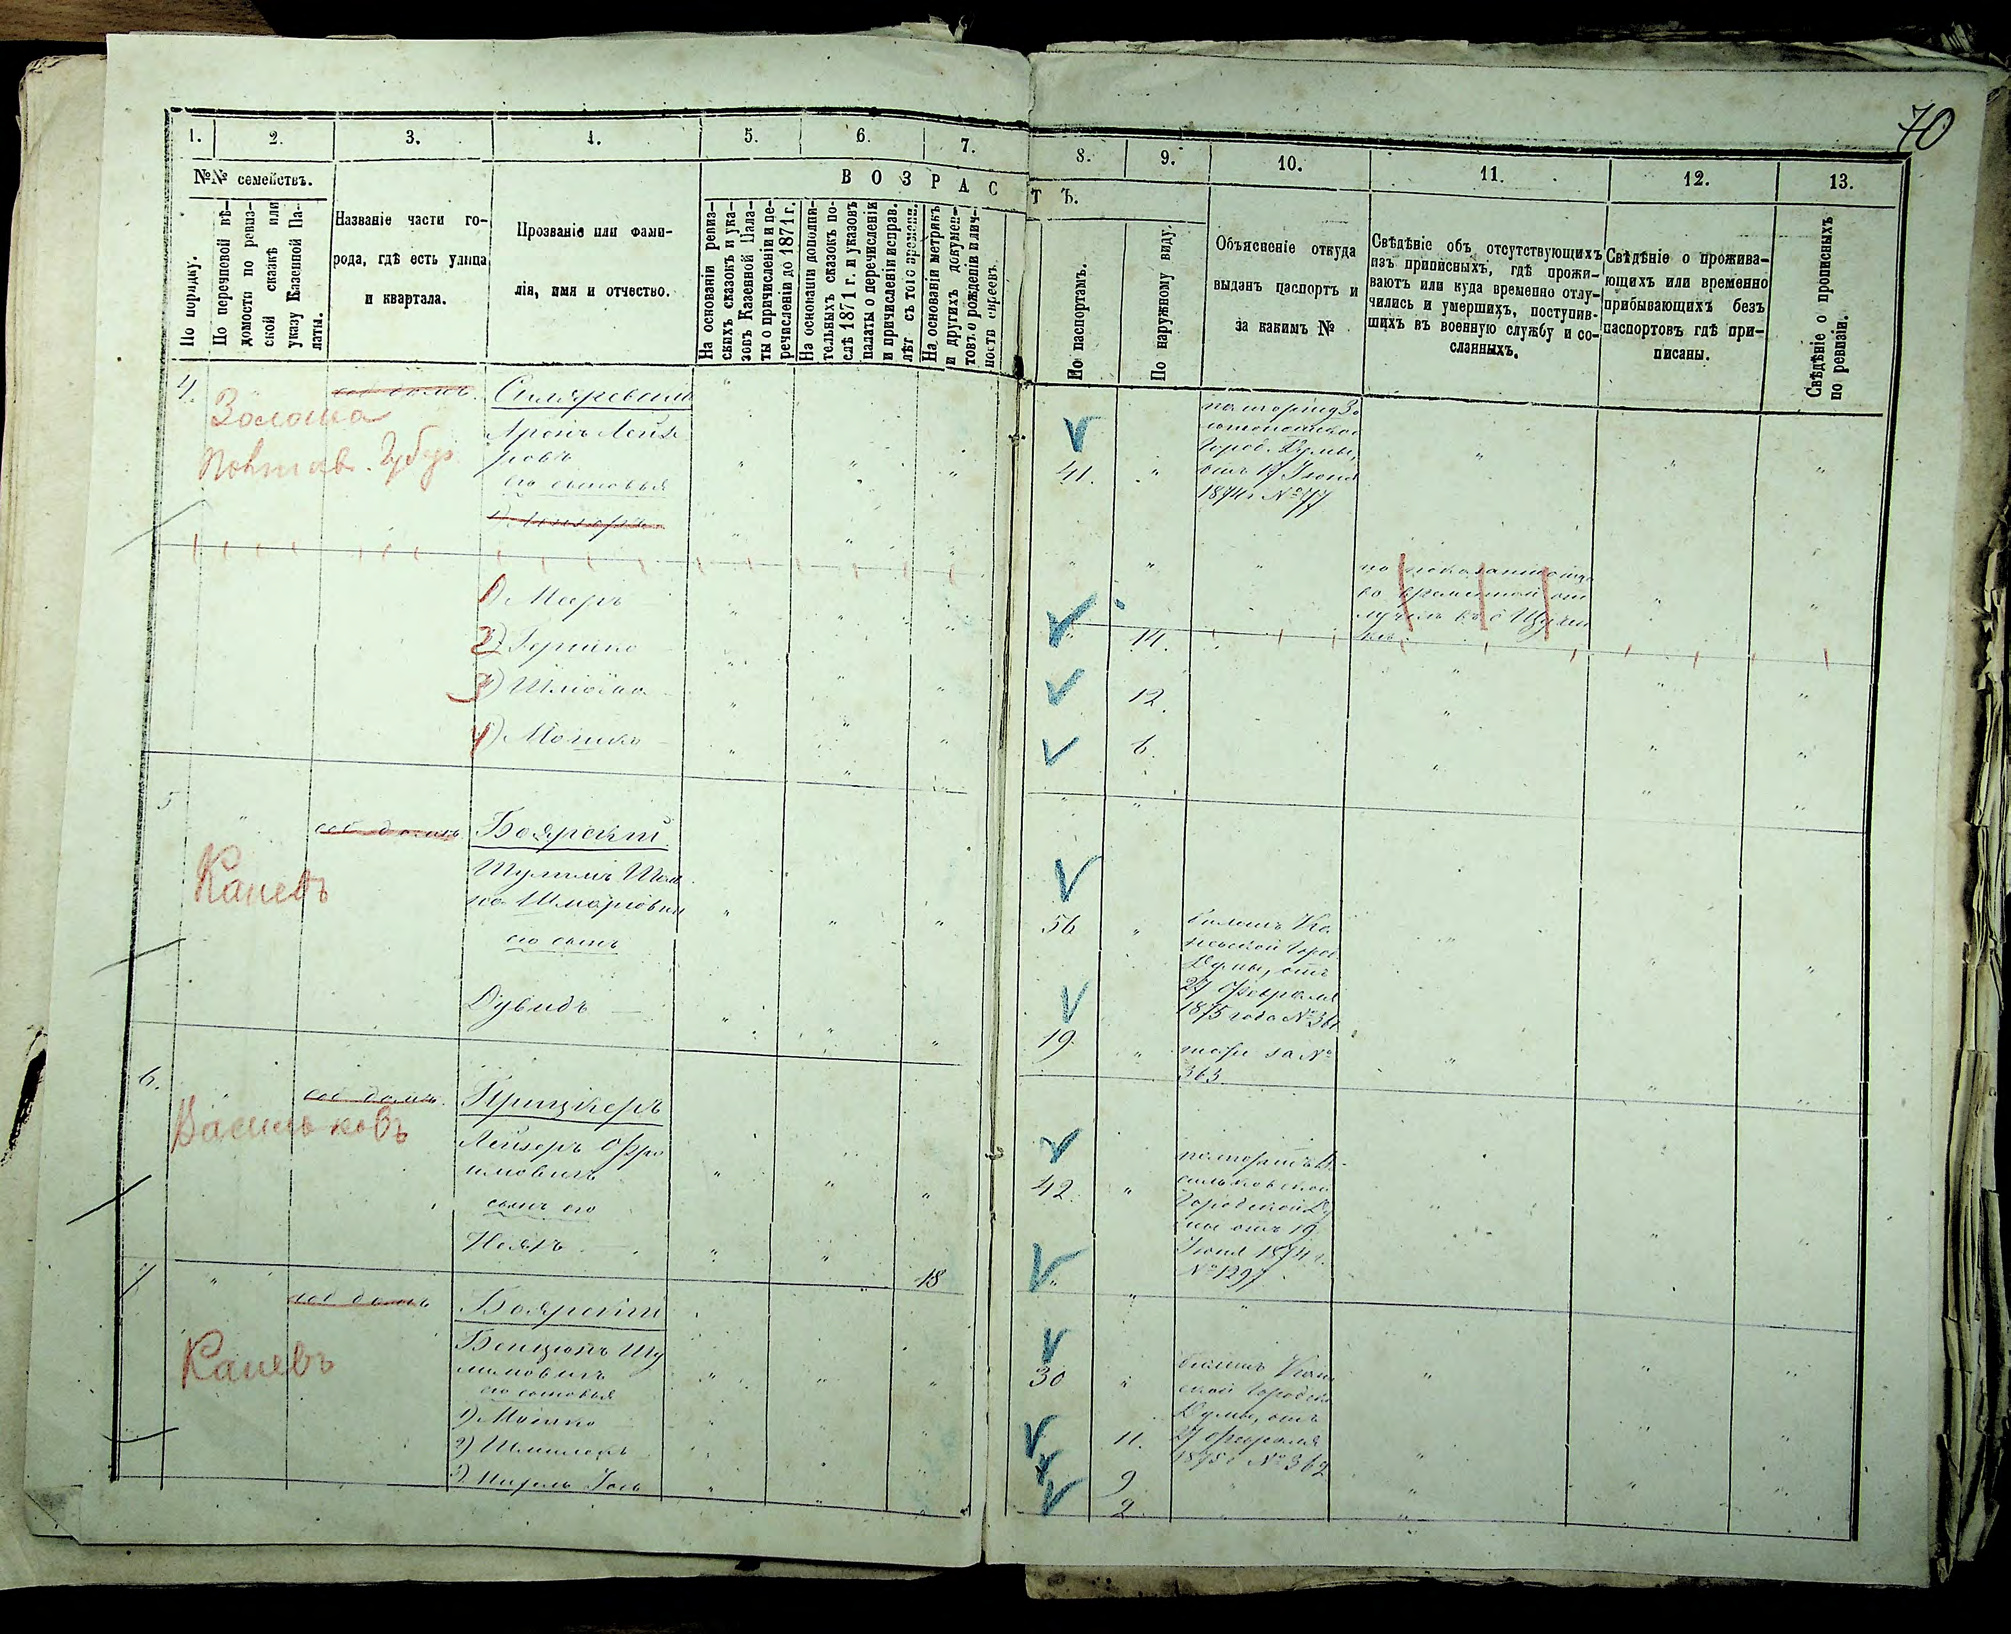 70
1. 2. 3. 4. 5. 6. 7. 8. 9. 10. 11. 12. 13.
№№ семействъ.
ВОЗРАСТЪ.
По порядку.
По перечневой вѣ-
домости по ревиз-
ской сказкѣ или
указу Казенной Па-
латы.
Названіе части го-
рода, гдѣ есть улица
и квартала.
Прозваніе или фами-
лія, имя и отчество.
На основаніи ревиз-
скихъ сказокъ и ука-
зовъ Казенной Пала-
ты о причисленіи и пе-
речисленіи до 1871 г.
На основаніи дополни-
тельныхъ сказокъ по-
слѣ 1871 г. и указовъ
палаты о перечисленіи
и причисленіи исправ.
лѣт съ того времени.
На основаніи метрикъ
и другихъ докумен-
товъ о рожденіи и лич-
ности евреевъ.
По паспортамъ.
По наружному виду.
Объясненіе откуда
выданъ паспортъ и
за какимъ №
Свѣдѣніе объ отсутствующихъ
изъ приписныхъ, гдѣ прожи-
ваютъ или куда временно отлу-
чились и умершихъ, поступив-
шихъ въ военную службу и со-
сланныхъ.
Свѣдѣніе о прожива-
ющихъ или временно
прибывающихъ безъ
паспортовъ гдѣ при-
писаны.
Свѣдѣніе о прописныхъ
по ревизіи.
4.
Золотоша
Полтав. Губер
Аронъ Лейзе
ровъ
его сыновья
41.
Город. Думы,
отъ 17 Іюня
1874 г №777
1) Мееръ
14.
2) Гершко
12.
3) Шлиома
6.
4) Мошко
5
соб домъ
Каневъ
Боярскій
Шулимъ Шля
56
его сынъ
билетъ Ка
невской Город
Думы, отъ
27 Февраля
1875 года №361
Дувидъ
19.
тоже за №
363
6.
соб домъ.
Васильковъ
Прицкеръ
Лейзеръ Фро
имовичъ
42.
сынъ его
паспортъ Ва
сильковской
Городской Ду
мы отъ 19
Іюня 1874 г.
№1297
18
7
соб домъ
Каневъ
Боярскій
Бенціонъ Шу
лимовичъ
30
его сыновья
1) Мошко
11.
2) Шмилекъ
9
3)
2
билетъ Канев
ской Городской
Думы, отъ
27 Февраля
1875 г №362